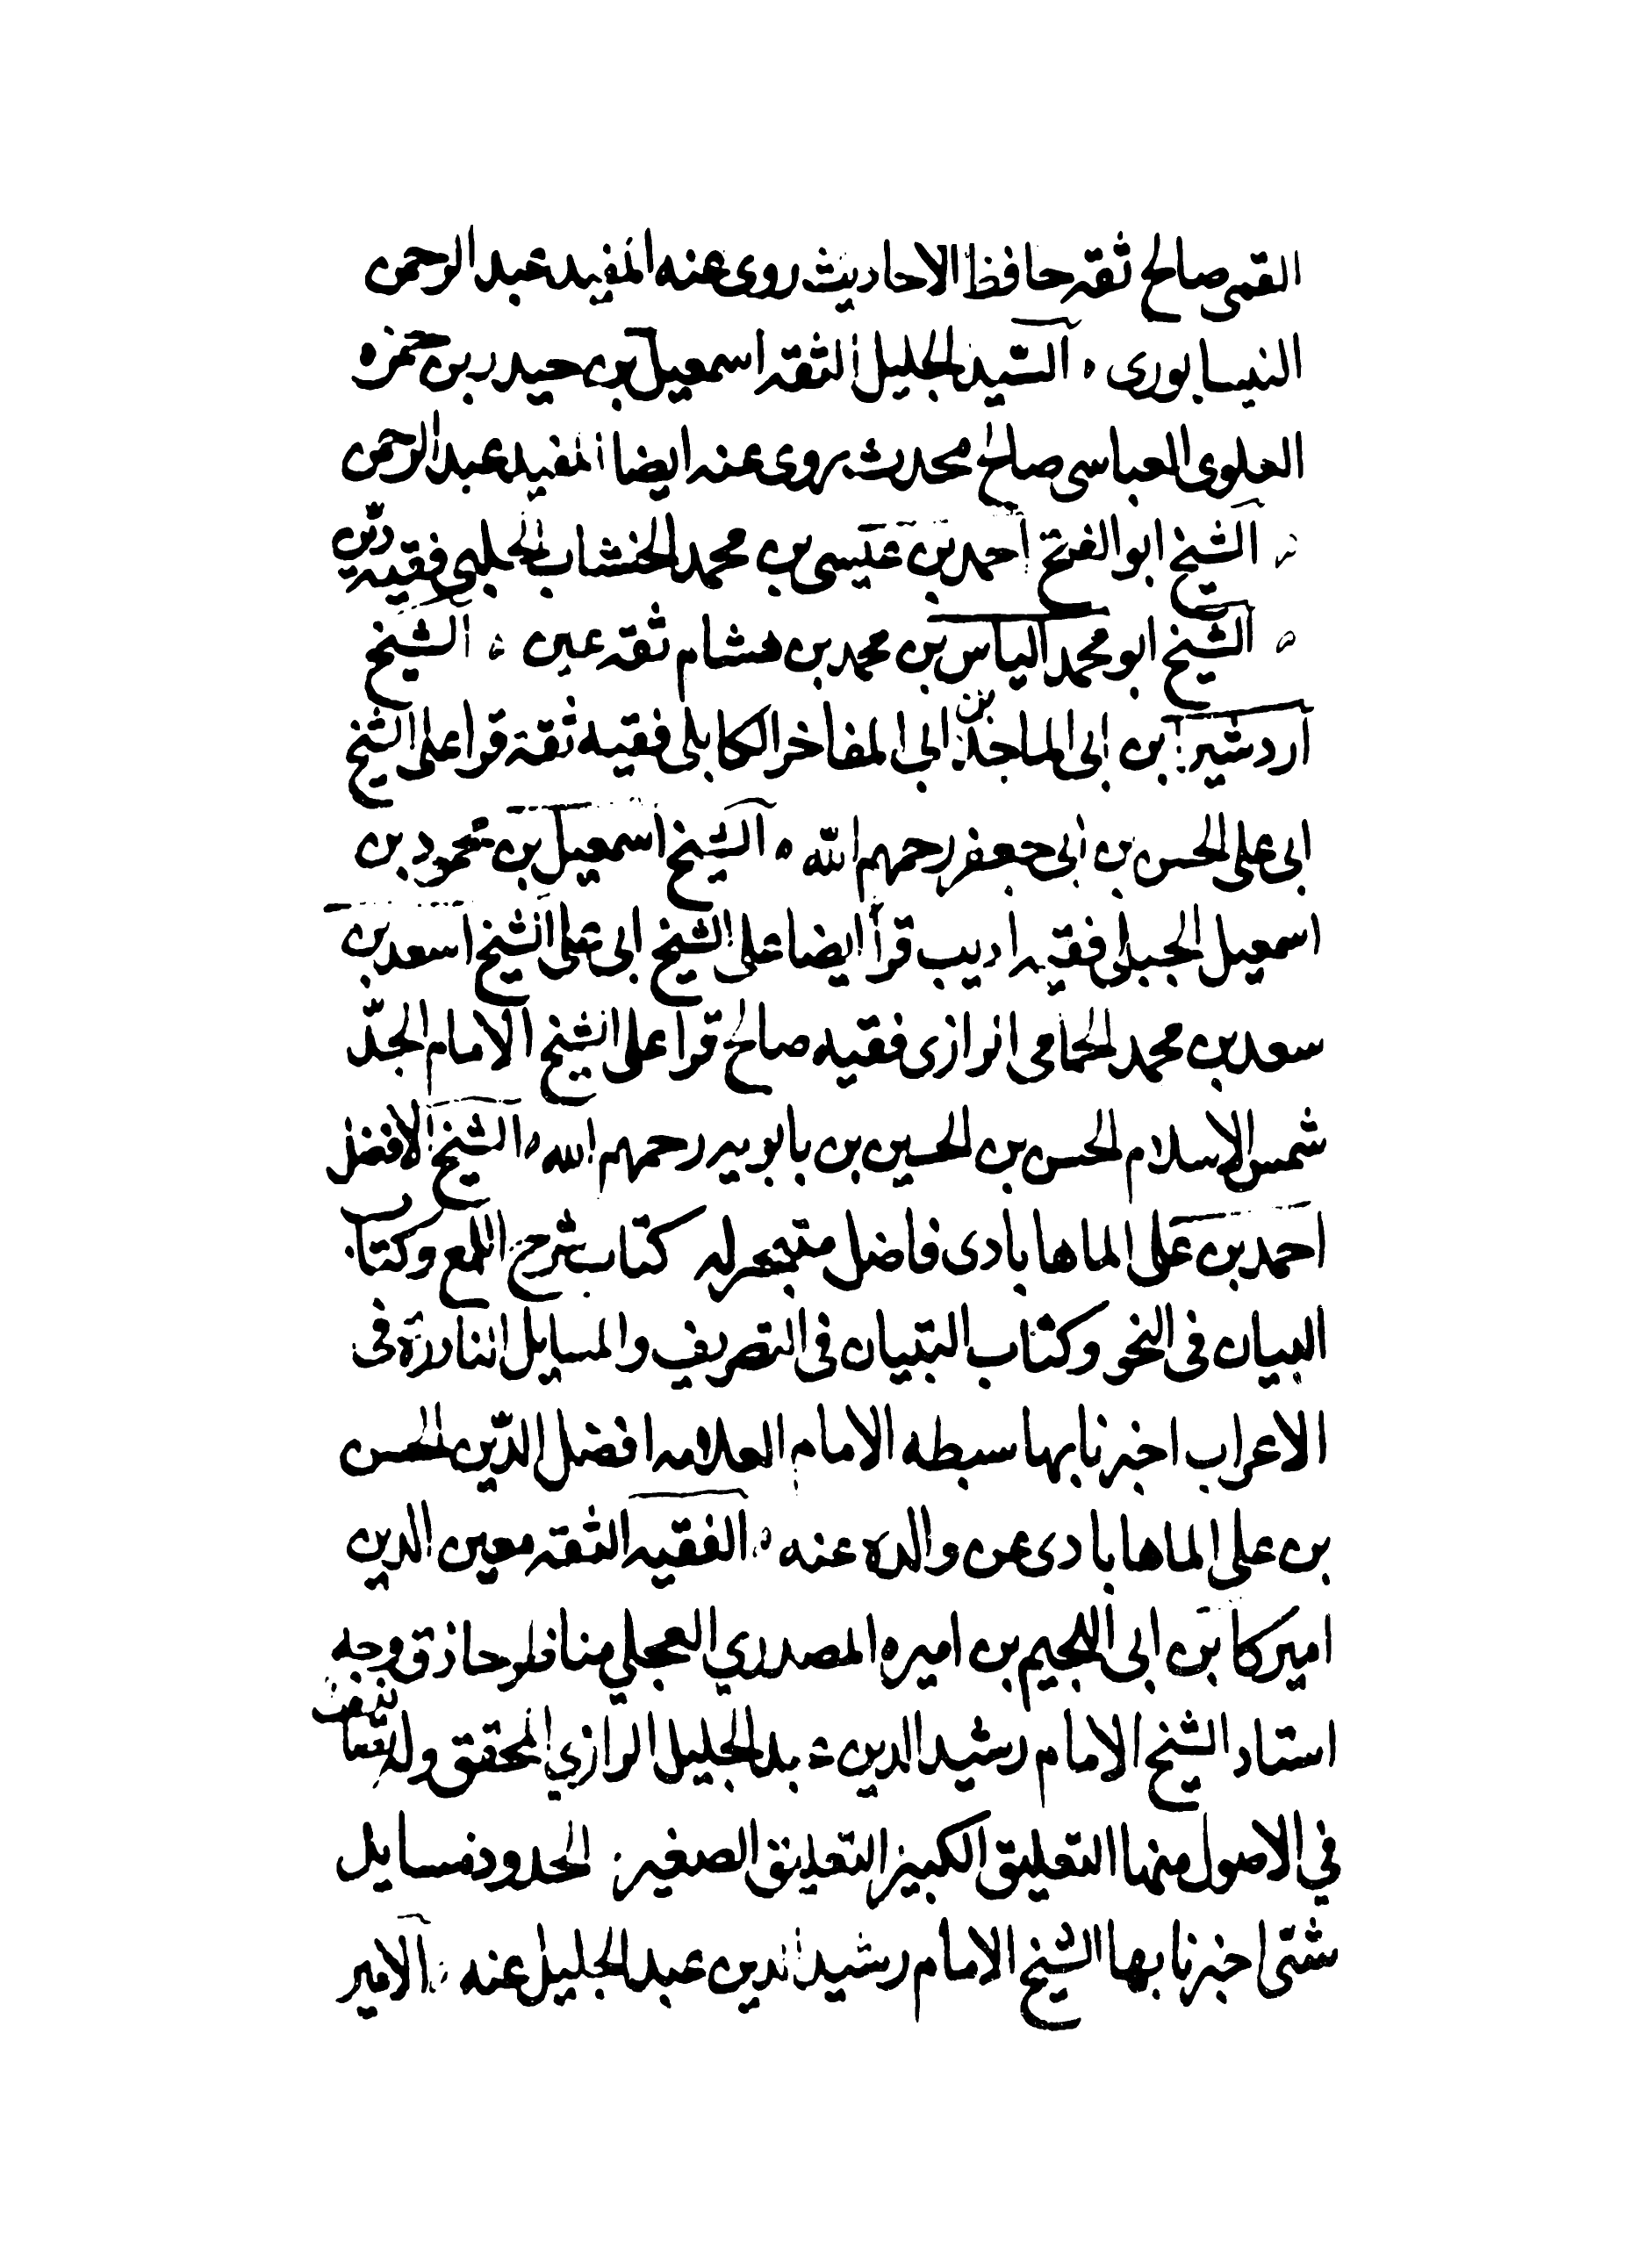 القمى صالح ثقه حافظ الاحاديث روى عنه المفيد عبد الرحمن
النيسابورى ه السيد الجليل الثقه اسمعيل بن حيدر بن حمزه
العلوى العباسى صالح محدث روى عنه ايضا المفيد عبد الرحمن
ه الشيخ ابو الفتح احمد بن عيسى بن محمد الخشاب الحلبى فقيه ديّن
ه الشيخ ابو محمد الياس بن محمد بن هشام ثقه عين ه الشيخ
اردشير بن ابى الماجد بن ابى المفاخر الكابلى فقيه ثقة قرا على الشيخ
ابى على الحسن بن ابى جعفر رحمهم الله ه الشيخ اسمعيل بن محمود بن
اسمعيل الجبلى فقيه اديب قرأ ايضا على الشيخ ابى على الشيخ اسعد بن
سعد بن محمد الحمامى الرازى فقيه صالح قرا على الشيخ الامام الجدّ
شمس الاسلام الحسن بن الحسين بن بابويه رحمهم الله ه الشيخ الافضل
احمد بن على الماهابادى فاضل متبحر له كتاب شرح اللمع وكتاب
البيان فى النحو وكتاب التبيان فى التصريف والمسايل النادرة فى
الاعراب اخبرنا بها سبطه الامام العلامه افضل الدّين الحسن
بن على الماهابادى عن والده عنه ه الفقيه الثقه معين الدين
اميركا بن ابى اللجيم بن اميره المصدري العجلي مناظر حاذق وجه
استاد الشيخ الامام رشيد الدين عبد الجليل الرازي المحقق وله تصانيف
في الاصول منها التعليق الكبير التعليق الصغير الحدود مسايل
شتى اخبرنا بها الشيخ الامام رشيد الدين عبد الجليل عنه ه الامير